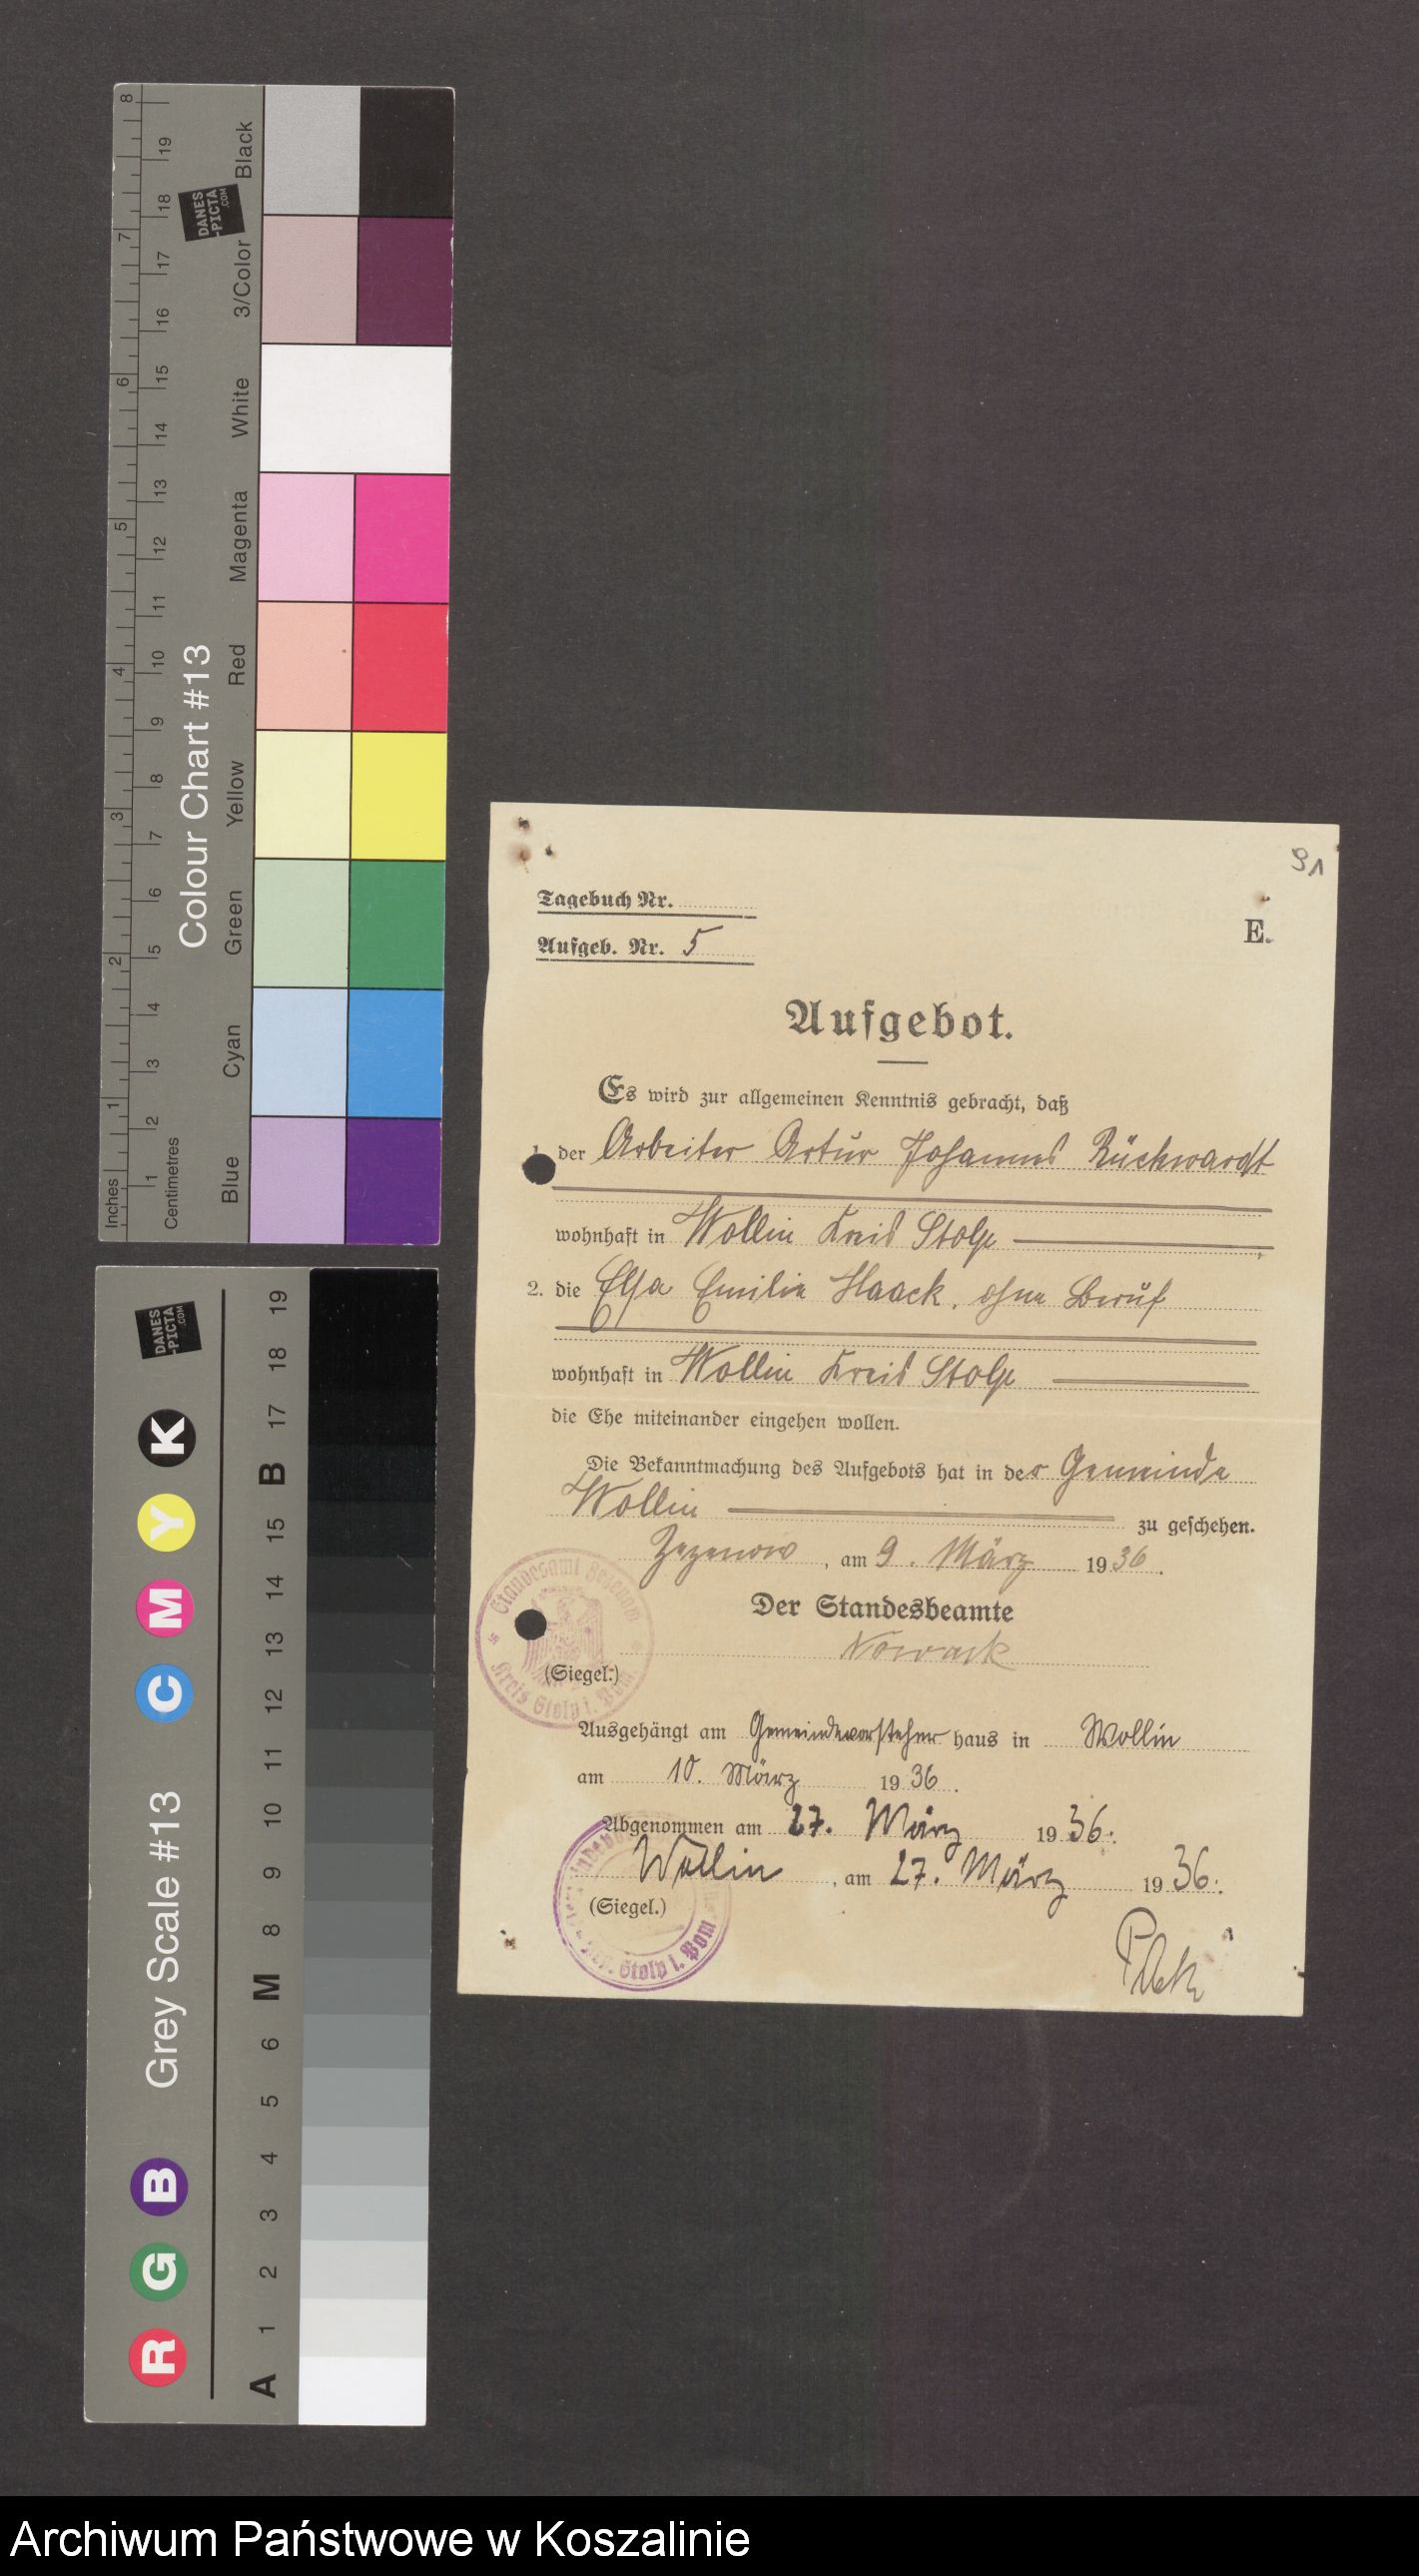 91
Tagebuch Nr.
E.
Aufgeb. Nr. 5
Aufgebot.
Es wird zur allgemeinen Kenntnis gebracht, daß
1. der Arbeiter Artur Johannes Rückwardt
wohnhaft in Wollin Kreis Stolp
2. die Elsa Emilie Haack, ohne Beruf
wohnhaft in Wollin Kreis Stolp
die Ehe miteinander eingehen wollen.
Die Bekanntmachung des Aufgebots hat in der Gemeinde
Wollin zu geschehen.
Zezenow, am 9. März 1936.
Der Standesbeamte
Nowack
(Siegel.)
Standesamt Zezenow
Kreis Stolp i. Pom.
Ausgehängt am Gemeindevorsteher haus in Wollin
am 10. März 1936.
Abgenommen am 27. März 1936.
Wollin, am 27. März 1936.
(Siegel.)
Stolp i. Pom.
Colour Chart #13
Inches
Centimetres
1 2 3 4 5 6 7 8
1 2 3 4 5 6 7 8 9 10 11 12 13 14 15 16 17 18 19
Blue Cyan Green Yellow Red Magenta White 3/Color Black
DANES
-PICTA
.COM
Grey Scale #13
R G B C M Y K
A 1 2 3 4 5 6 M 8 9 10 11 12 13 14 15 B 17 18 19
DANES
-PICTA
.COM
Archiwum Państwowe w Koszalinie